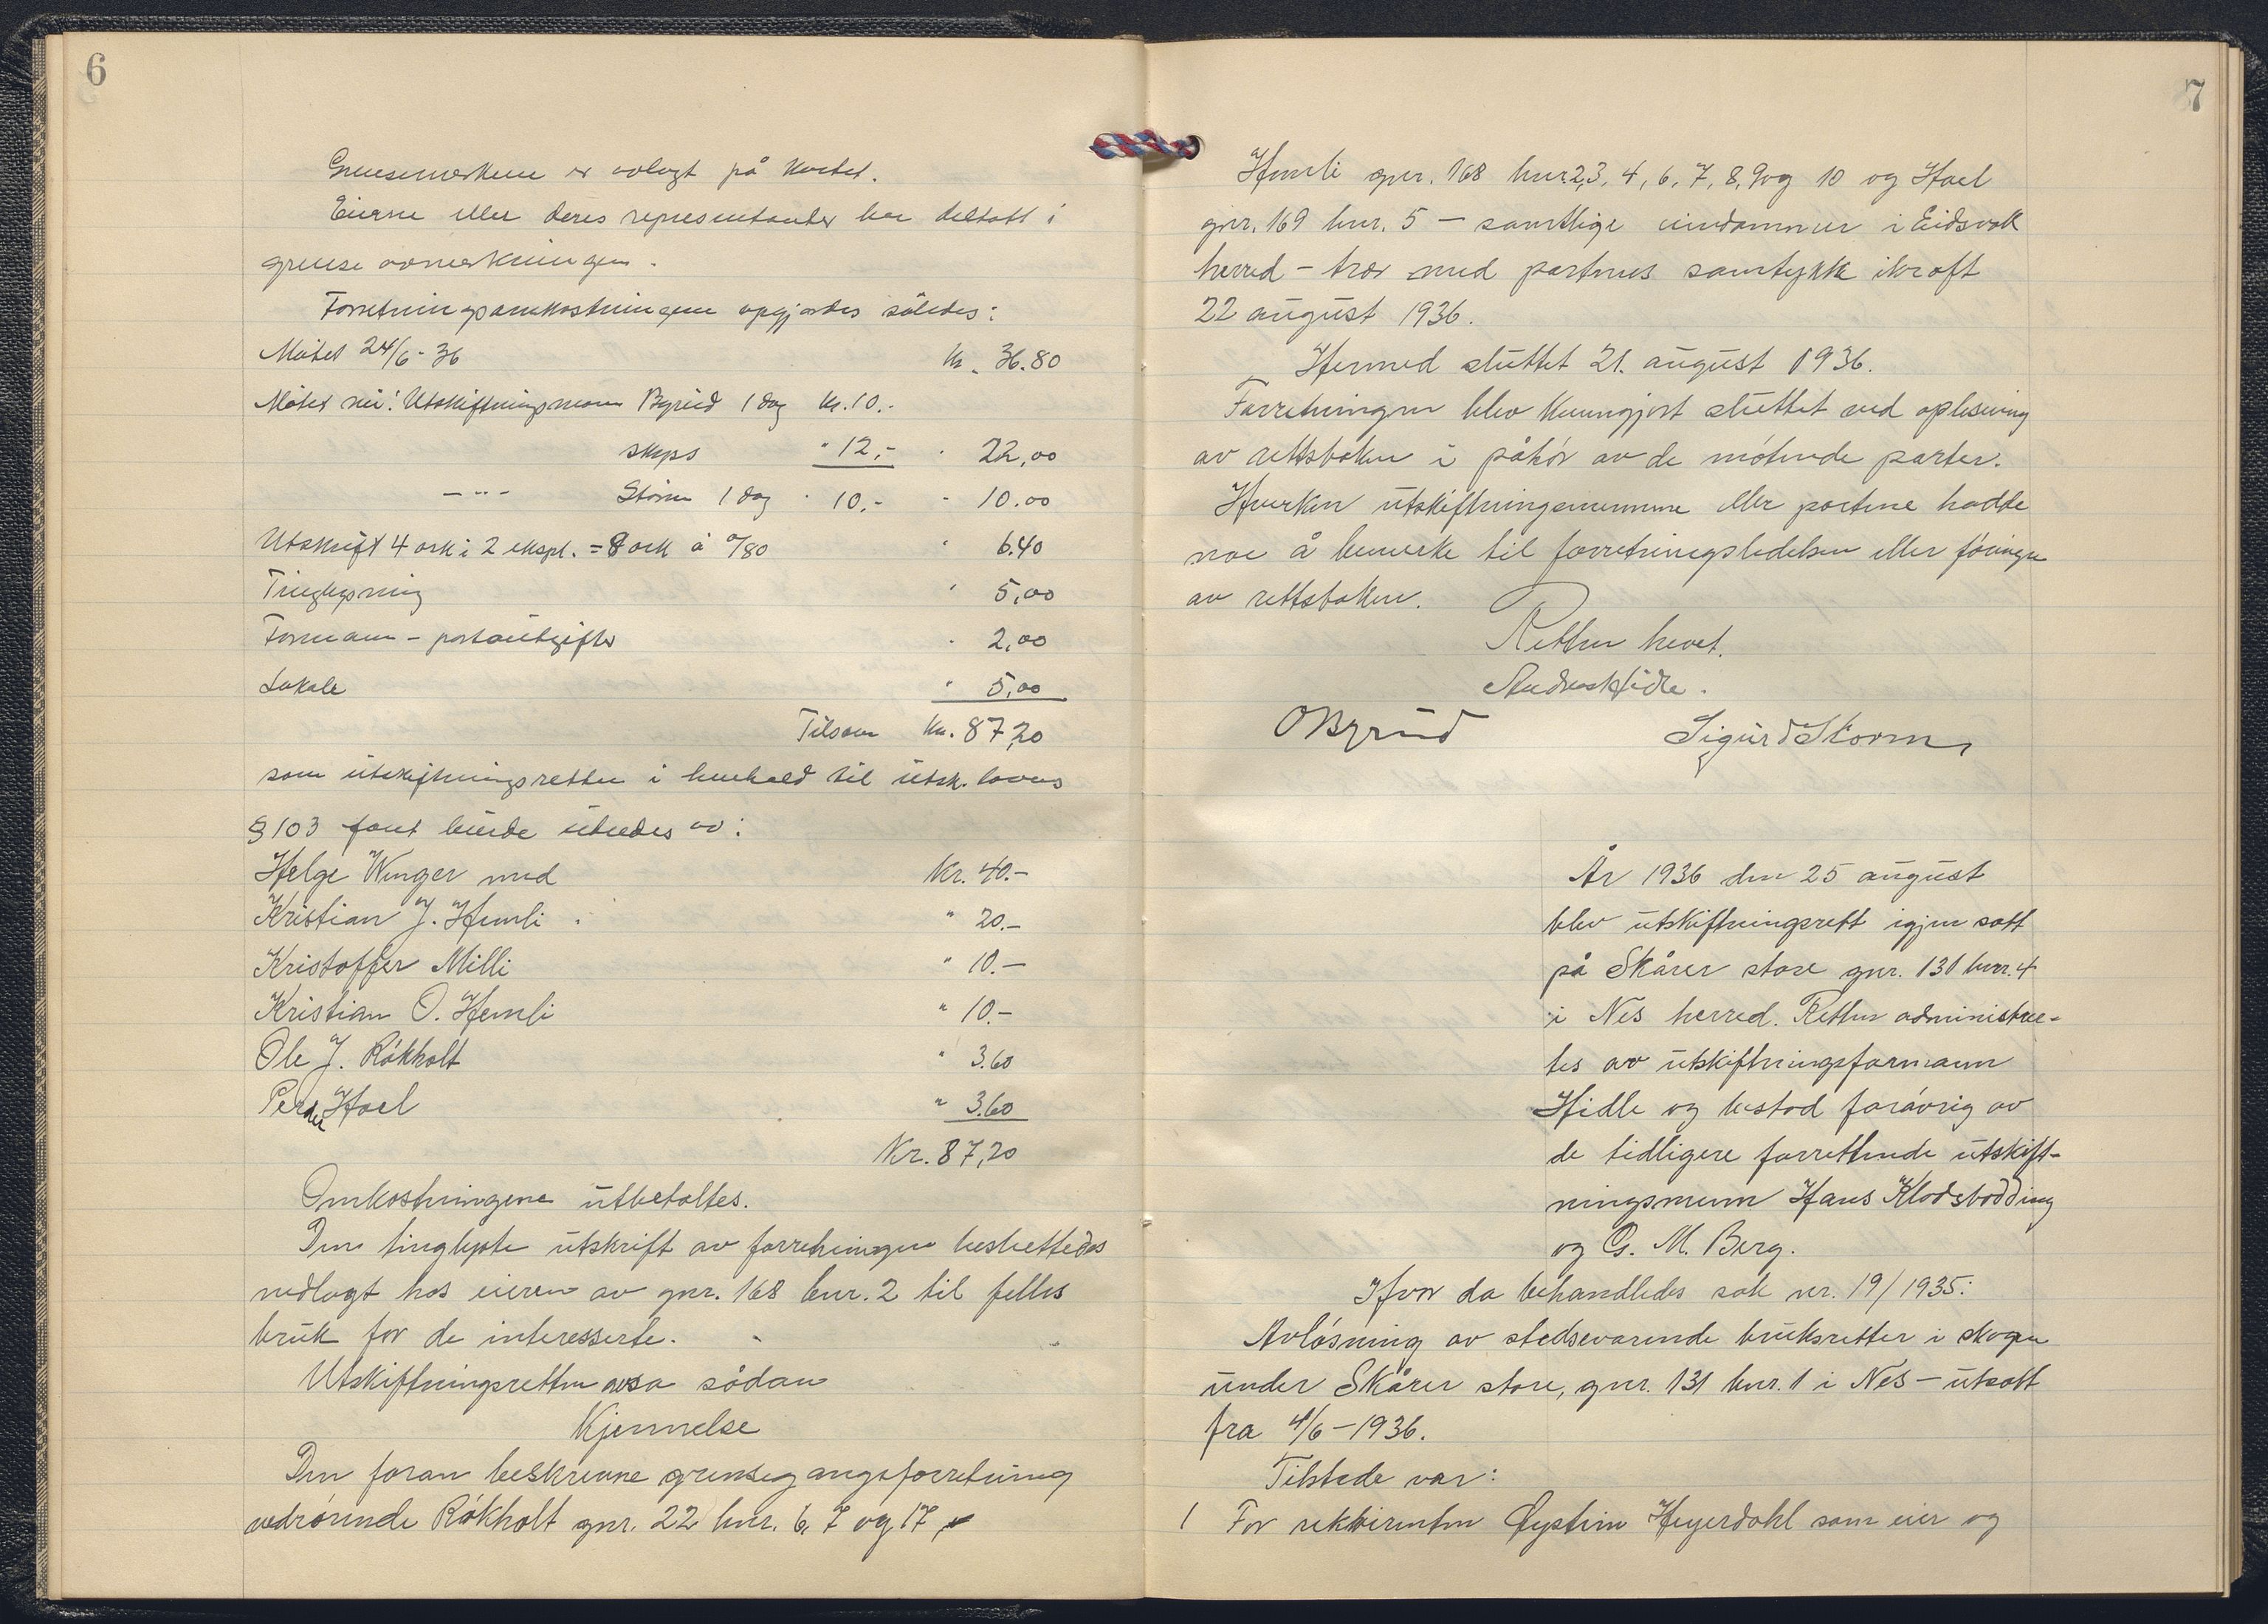 6
Grensemerkene er avlagt på kartet.
Eierne eller deres representanter har deltatt i
grense avmerkningen.
Forretningsomkostningene opgjordes således:
Møtet 24/6-36 kr. 36.80
Møtet nu: Utskiftningsmann Byrud 1 dag kr. 10.-
skyss " 12,- " 22,00
-"- Storm 1 dag " 10.- " 10.00
Utskrift 4 ark i 2 ekspl. = 8 ark à 0/80 " 6.40
Tinglysning " 5,00
Formann - portoutgifter " 2,00
Lokale " 5,00
Tilsam Kr. 87,20
som utskiftningsretten i henhold til utsk. lovens
§ 103 fant burde utredes av:
Helge Winger med Kr. 40.-
Kristian J. Hemli " " 20.-
Kristoffer Milli " 10.-
Kristian O. Hemli " 10.-
Ole J. Råkholt " 3.60
Peder Hoel " 3.60
Kr. 87,20
Omkostningene utbetaltes.
Den tinglyste utskrift av forretningen besluttedes
nedlagt hos eieren av gnr. 168 bnr. 2 til felles
bruk for de interesserte.
Utskiftningsretten avsa sådan
Kjennelse
Den foran beskrevne grensegangsforretning
vedrørende Råkholt gnr. 22 bnr. 6, 7 og 17,
7
Hemli gnr. 168 bnr. 2, 3, 4, 6, 7, 8, 9 og 10 og Hoel
gnr. 169 bnr. 5 - samtlige eiendommer i Eidsvoll
herred - trær med partenes samtykke ikraft
22 august 1936.
Hermed sluttet 21. august 1936.
Forretningen blev kunngjort sluttet ved oplesning
av rettsboken i påhør av de møtende parter.
Hverken utskiftningsmennene eller partene hadde
noe å bemerke til forretningsledelsen eller føringen
av rettsboken.
Retten hevet.
Andreas Hidle.
O Byrud Sigurd Storm
År 1936 den 25 august
blev utskiftningsrett igjen satt
på Skårer store gnr. 131 bnr. 4
i Nes herred. Retten administrer-
tes av utskiftningsformann
Hidle og bestod forøvrig av
de tidligere forrettende utskift-
ningsmenn Hans Klodsbodding
og G. M. Berg.
Hvor da behandledes sak nr. 19/1935:
Avløsning av stedsevarende bruksretter i skogen
under Skårer store, gnr. 131 bnr. 1 i Nes - utsatt
fra 4/6-1936.
Tilstede var:
1 For rekvirenten Øystein Heyerdahl som eier og